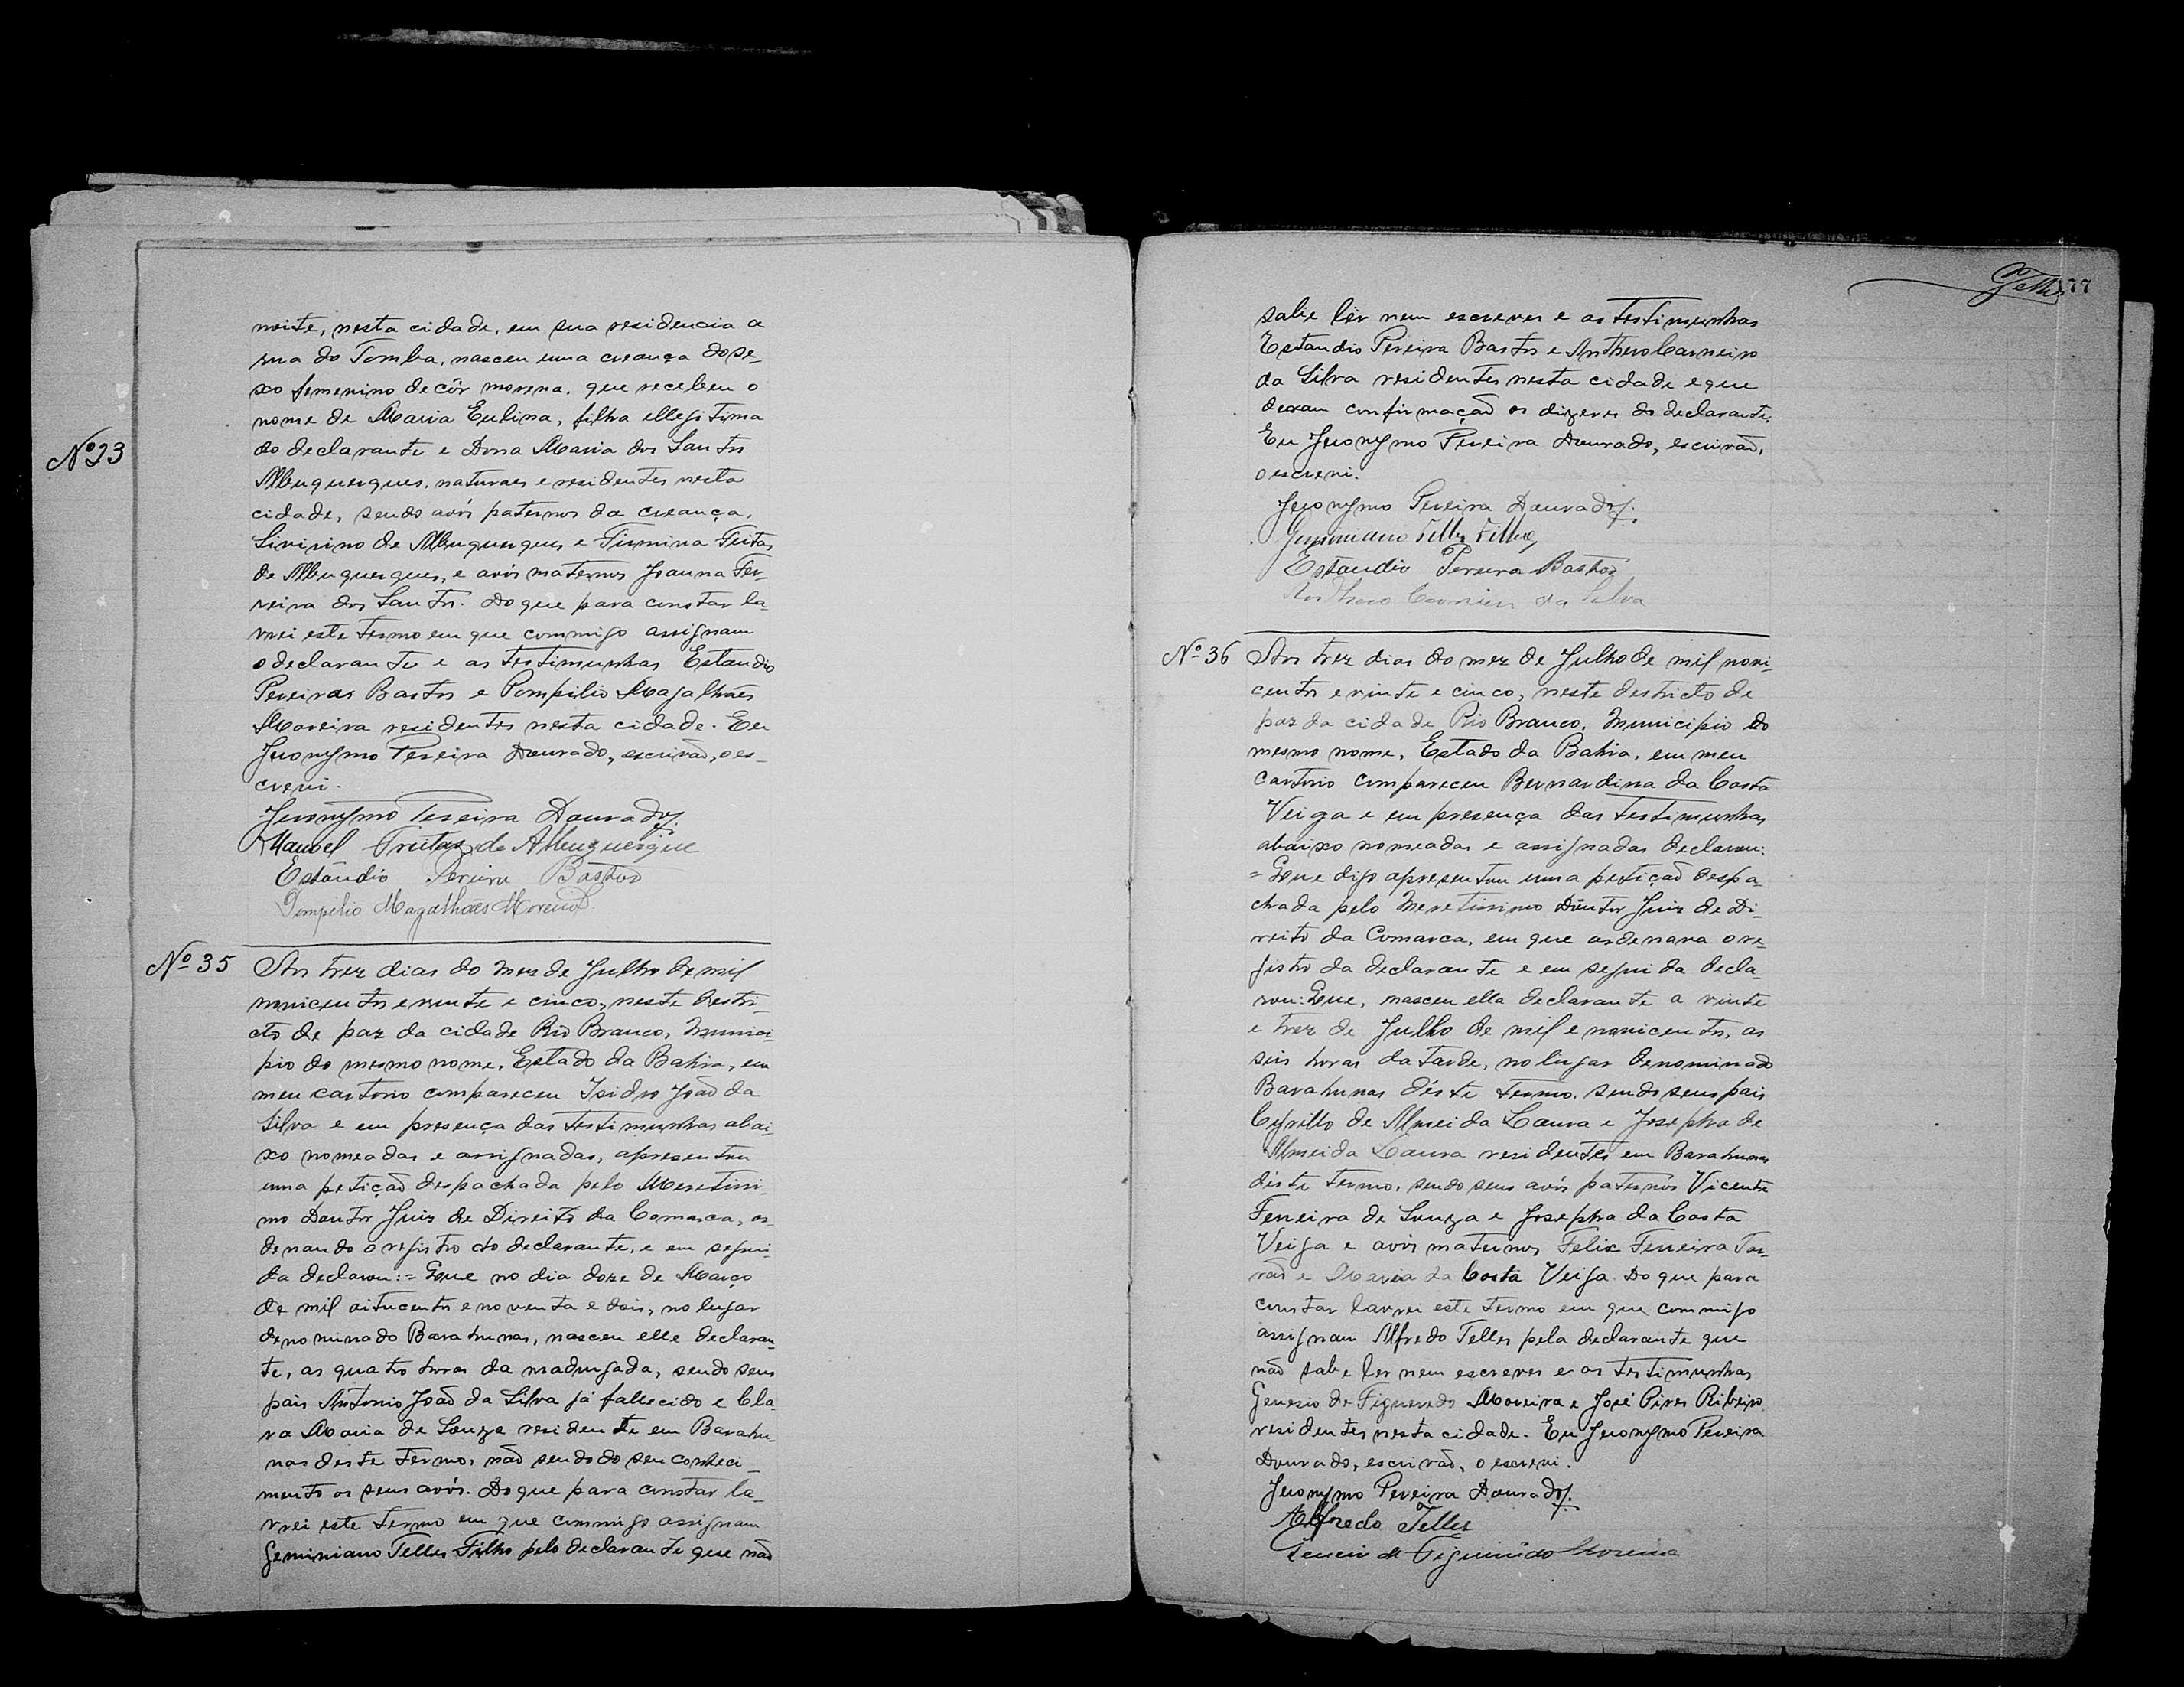 noite, nesta cidade, em sua residencia a
rua do Tomba, nasceu uma creança do se-
xo femenino de côr morena, que recebeu o
nome de Maria Eulina, filha ellegitima
do declarante e Dona Maria dos Santos
Albuquerques, naturaes e residentes nesta
cidade, sendo avós paternos da creança,
Livirino de Albuquerques e Firmina Freitas
de Albuquerques, e avós maternos Joanna Fer-
reira dos Santos. Do que para constar la-
vrei este termo em que commigo assignam
o declarante e as testimunhas Estandio
Pereiras Bastos e Pompilio Magalhães
Moreira residentes nesta cidade. Eu
Jeronymo Pereira Dourado, escrivão, o es-
crevi.
Jeronymo Pereira Dourado
Manoel Freitas de Albuquerque
Estândio Pereira Bastos
Pompilio Magalhães Moreira
Nº 23
Nº 35 Aos trez dias do mes de Julho de mil
novicentos e vinte e cinco, neste destri-
cto de paz da cidade Rio Branco, Munici-
pio do mesmo nome, Estado da Bahia, em
meu cartorio compareceu Isidro João da
Silva e em presença das testimunhas abai-
xo nomeadas e assignadas, apresentou
uma petição despachada pelo Meretissi-
mo Doutor Juiz de Direito da Comarca, or-
denando o registro do declarante, e em segui-
da declarou:= Que no dia doze de Março
de mil oitucentos e noventa e dois, no lugar
denominado Barahunas, nasceu elle declaran-
te, as quatro horas da madrugada, sendo seus
pais Antonio João da Silva já fallecido e Cla-
ra Maria de Souza residente em Barahu-
nas deste termo, não sendo do seu conheci-
mento os seus avós. Do que para constar la-
vrei este termo em que commigo assignam
Geminiano Telles Filho pelo declarante que não
Telles 177
sabe ler nem escrever e as testimunhas
Estandio Pereira Bastos e Anthero Carneiro
da Silva residentes nesta cidade e que
deram confirmação os dizeres do declarante.
Eu Jeronymo Pereira Dourado, escrivão,
o escrevi.
Jeronymo Pereira Dourado
Geminiano Telles Filho
Estandio Pereira Bastos
Anthero Carneiro da Silva
Nº 36 Aos trez dias do mez de Julho de mil novi-
centos e vinte e cinco, neste destricto de
paz da cidade Rio Branco, Municipio do
mesmo nome, Estado da Bahia, em meu
cartorio compareceu Bernardina da Costa
Veiga e em presença das testimunhas
abaixo nomeadas e assignadas declarou:
= Que digo apresentou uma petição despa-
chada pelo Meretissimo Doutor Juiz de Di-
reito da Comarca, em que ordenava o re-
gistro da declarante e em seguida decla-
rou: Que, nasceu ella declarante a vinte
e trez de Julho de mil e novicentos, as
seis horas da tarde, no lugar denominado
Barahunas déste termo, sendo seus pais
Cyrillo de Almeida Laura e Josepha de
Almeida Laura residentes em Barahunas
déste termo, sendo seus avós paternos Vicente
Ferreira de Souza e Josepha da Costa
Veiga e avós maternos Felix Ferreira
e Maria da Costa Veiga. Do que para
constar lavrei este termo em que commigo
assignam Alfredo Telles pela declarante que
não sabe ler nem escrever e as testimunhas
Genesio de Figueredo Moreira e José Pires Ribeiro
residentes nesta cidade. Eu Jeronymo Pereira
Dourado, escrivão, o escrevi.
Jeronymo Pereira Dourado
Alfredo Telles
de Figueirêdo Moreira